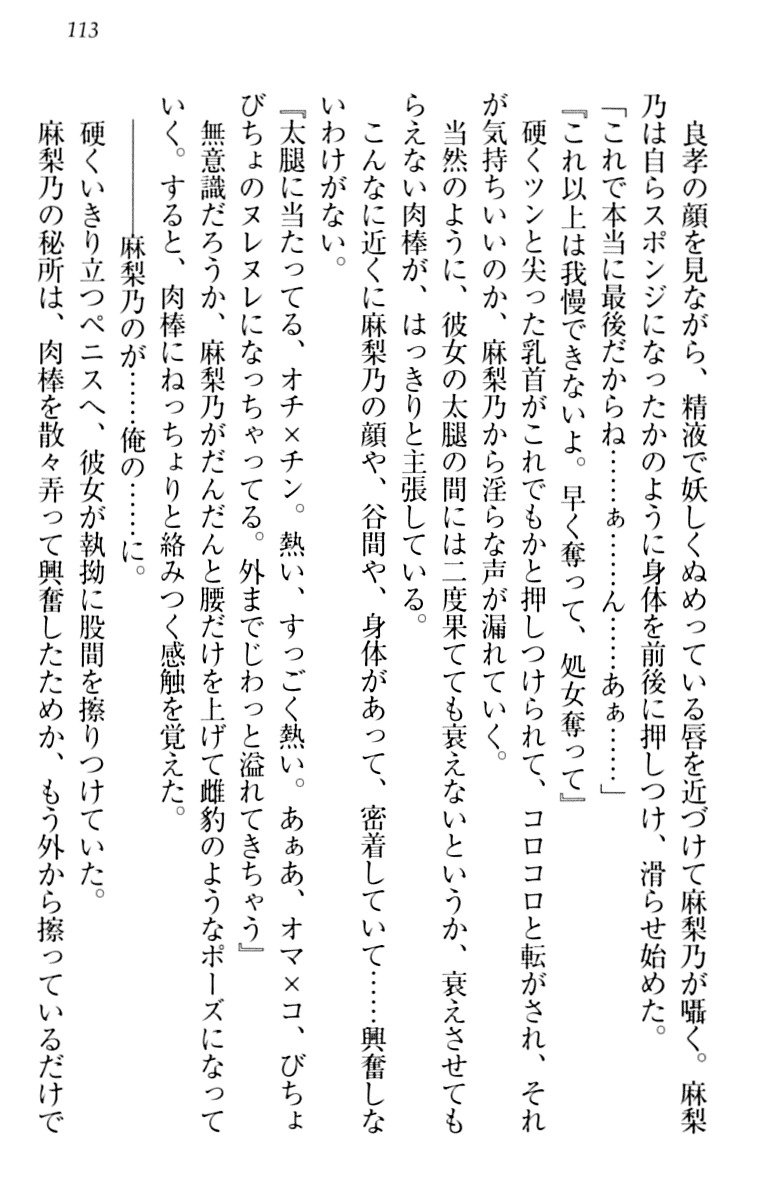 113
良孝の顔を見ながら、精液で妖しくぬめっている唇を近づけて麻梨乃が囁く。麻梨
乃は自らスポンジになったかのように身体を前後に押しつけ、滑らせ始めた。
「これで本当に最後だからね……ぁ……ん……あぁ……」
『これ以上は我慢できないよ。早く奪って、処女奪って』
硬くツンと尖った乳首がこれでもかと押しつけられて、コロコロと転がされ、それ
が気持ちいいのか、麻梨乃から淫らな声が漏れていく。
当然のように、彼女の太腿の間には二度果てても衰えないというか、衰えさせても
らえない肉棒が、はっきりと主張している。
こんなに近くに麻梨乃の顔や、谷間や、身体があって、密着していて……興奮しな
いわけがない。
『太腿に当たってる、オチ×チン。熱い、すっごく熱い。あぁあ、オマ×コ、びちょ
びちょのヌレヌレになっちゃってる。外までじわっと溢れてきちゃう』
無意識だろうか、麻梨乃がだんだんと腰だけを上げて雌豹のようなポーズになって
いく。すると、肉棒にねっちょりと絡みつく感触を覚えた。
――――麻梨乃のが……俺の……に。
硬くいきり立つペニスへ、彼女が執拗に股間を擦りつけていた。
麻梨乃の秘所は、肉棒を散々弄って興奮したためか、もう外から擦っているだけで